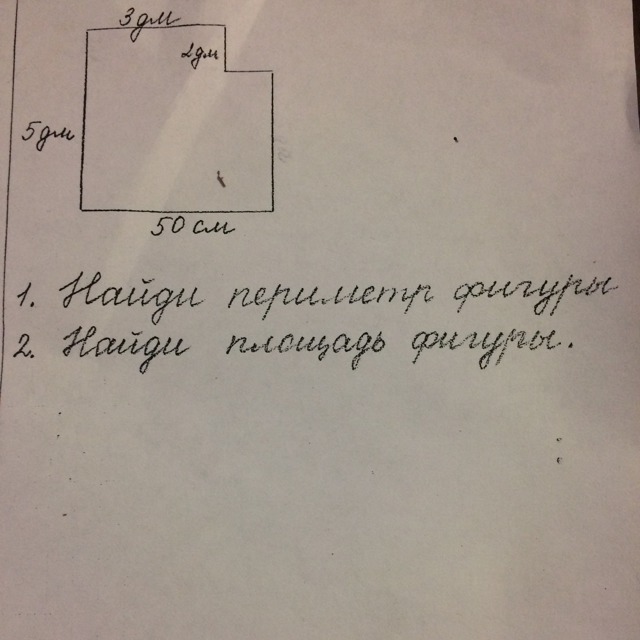 3дм
2дм
5дм
50 см
1. Найди периметр фигуры
2. Найди площадь фигуры.